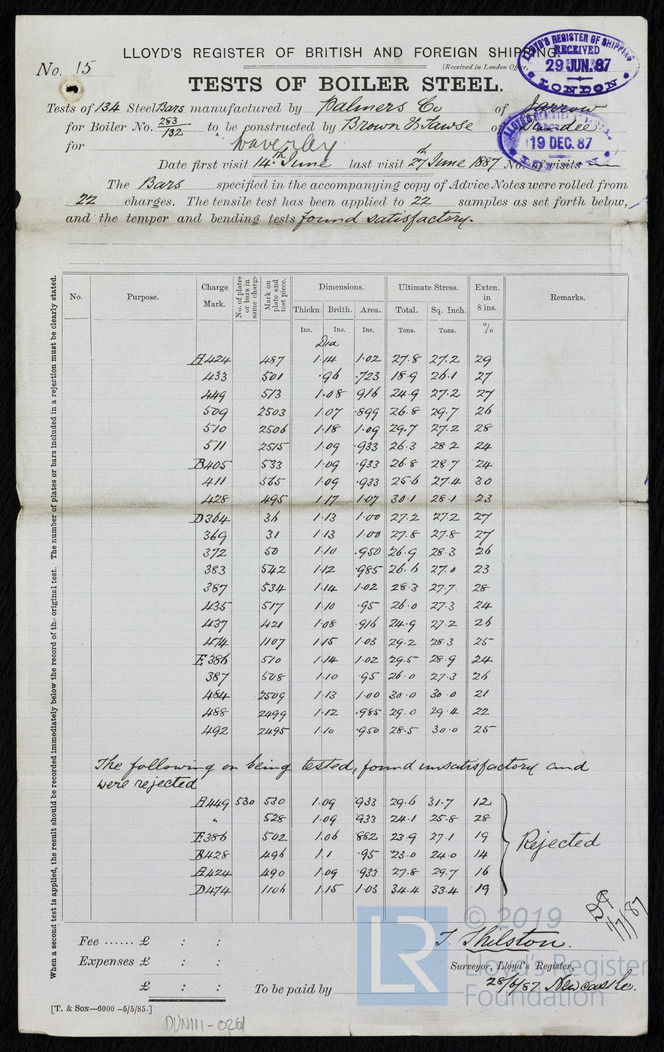 LLOYD'S REGISTER OF BRITISH AND FOREIGN SHIPPING.
No. 15
(Received in London Office
LLOYD'S REGISTER OF SHIPPING
RECEIVED
29 JUN. 87
LONDON
TESTS OF BOILER STEEL.
Tests of 134 Steel Bars manufactured by Palmers Co of Jarrow
for Boiler No. 253/132 to be constructed by Brown & Tawse of Dundee
for Waverley
19 DEC. 87
Date first visit 14th June last visit 27th June 1887 No. of visits
The Bars specified in the accompanying copy of Advice Notes were rolled from
22 charges. The tensile test has been applied to 22 samples as set forth below,
and the temper and bending tests found satisfactory.
When a second test is applied, the result should be recorded immediately below the record of the original test. The number of plates or bars included in a rejection must be clearly stated.
No. Purpose. Charge Mark. No. of plates or bars in same charge Mark on plate and test piece. Dimensions. Ultimate Stress. Exten. in 8 ins. Remarks.
Thickn. Brdth. Area. Total. Sq. Inch.
Ins. Ins. Ins. Tons. Tons. %
Dia
A424 487 1.14 1.02 27.8 27.2 29
433 501 .96 .723 18.9 26.1 27
449 513 1.08 916 24.9 27.2 27
509 2503 1.07 .899 26.8 29.7 26
510 2506 1.18 1.09 29.7 27.2 28
511 2515 1.09 .933 26.3 28.2 24
B405 533 1.09 .933 26.8 28.7 24
411 565 1.09 .933 25.6 27.4 30
428 495 1.17 1.07 30.1 28.1 23
D364 36 1.13 1.00 27.2 27.2 27
369 31 1.13 1.00 27.8 27.8 27
372 50 1.10 .950 26.9 28.3 26
383 542 1.12 .985 26.6 27.0 23
387 534 1.14 1.02 28.3 27.7 28
435 517 1.10 .95 26.0 27.3 24
437 421 1.08 .916 24.9 27.2 26
474 1107 1.15 1.03 29.2 28.3 25
E386 510 1.14 1.02 29.5 28.9 24
387 508 1.10 .95 26.0 27.3 26
484 2509 1.13 1.00 30.0 30.0 21
488 2499 1.12 .985 29.0 29.4 22
492 2495 1.10 .950 28.5 30.0 25
The following on being tested, found unsatisfactory and
were rejected
A449 530 530 1.09 933 29.6 31.7 12
" 528 1.09 .933 24.1 25.8 28
E386 502 1.06 882 23.9 27.1 19
B428 496 1.1 .95 23.0 24.0 14
A424 490 1.09 .933 27.8 29.7 16
D474 1106 1.15 1.03 34.4 33.4 19
Rejected
1/7/87
Fee ...... £ : :
Expenses £ : :
£ : :
To be paid by
T. Shilston.
Surveyor, Lloyd's Register,
28/6/87 Newcastle.
[T. & Son—6000 —5/5/85.]
DUN111-0261
LR
© 2019
Lloyd's Register
Foundation